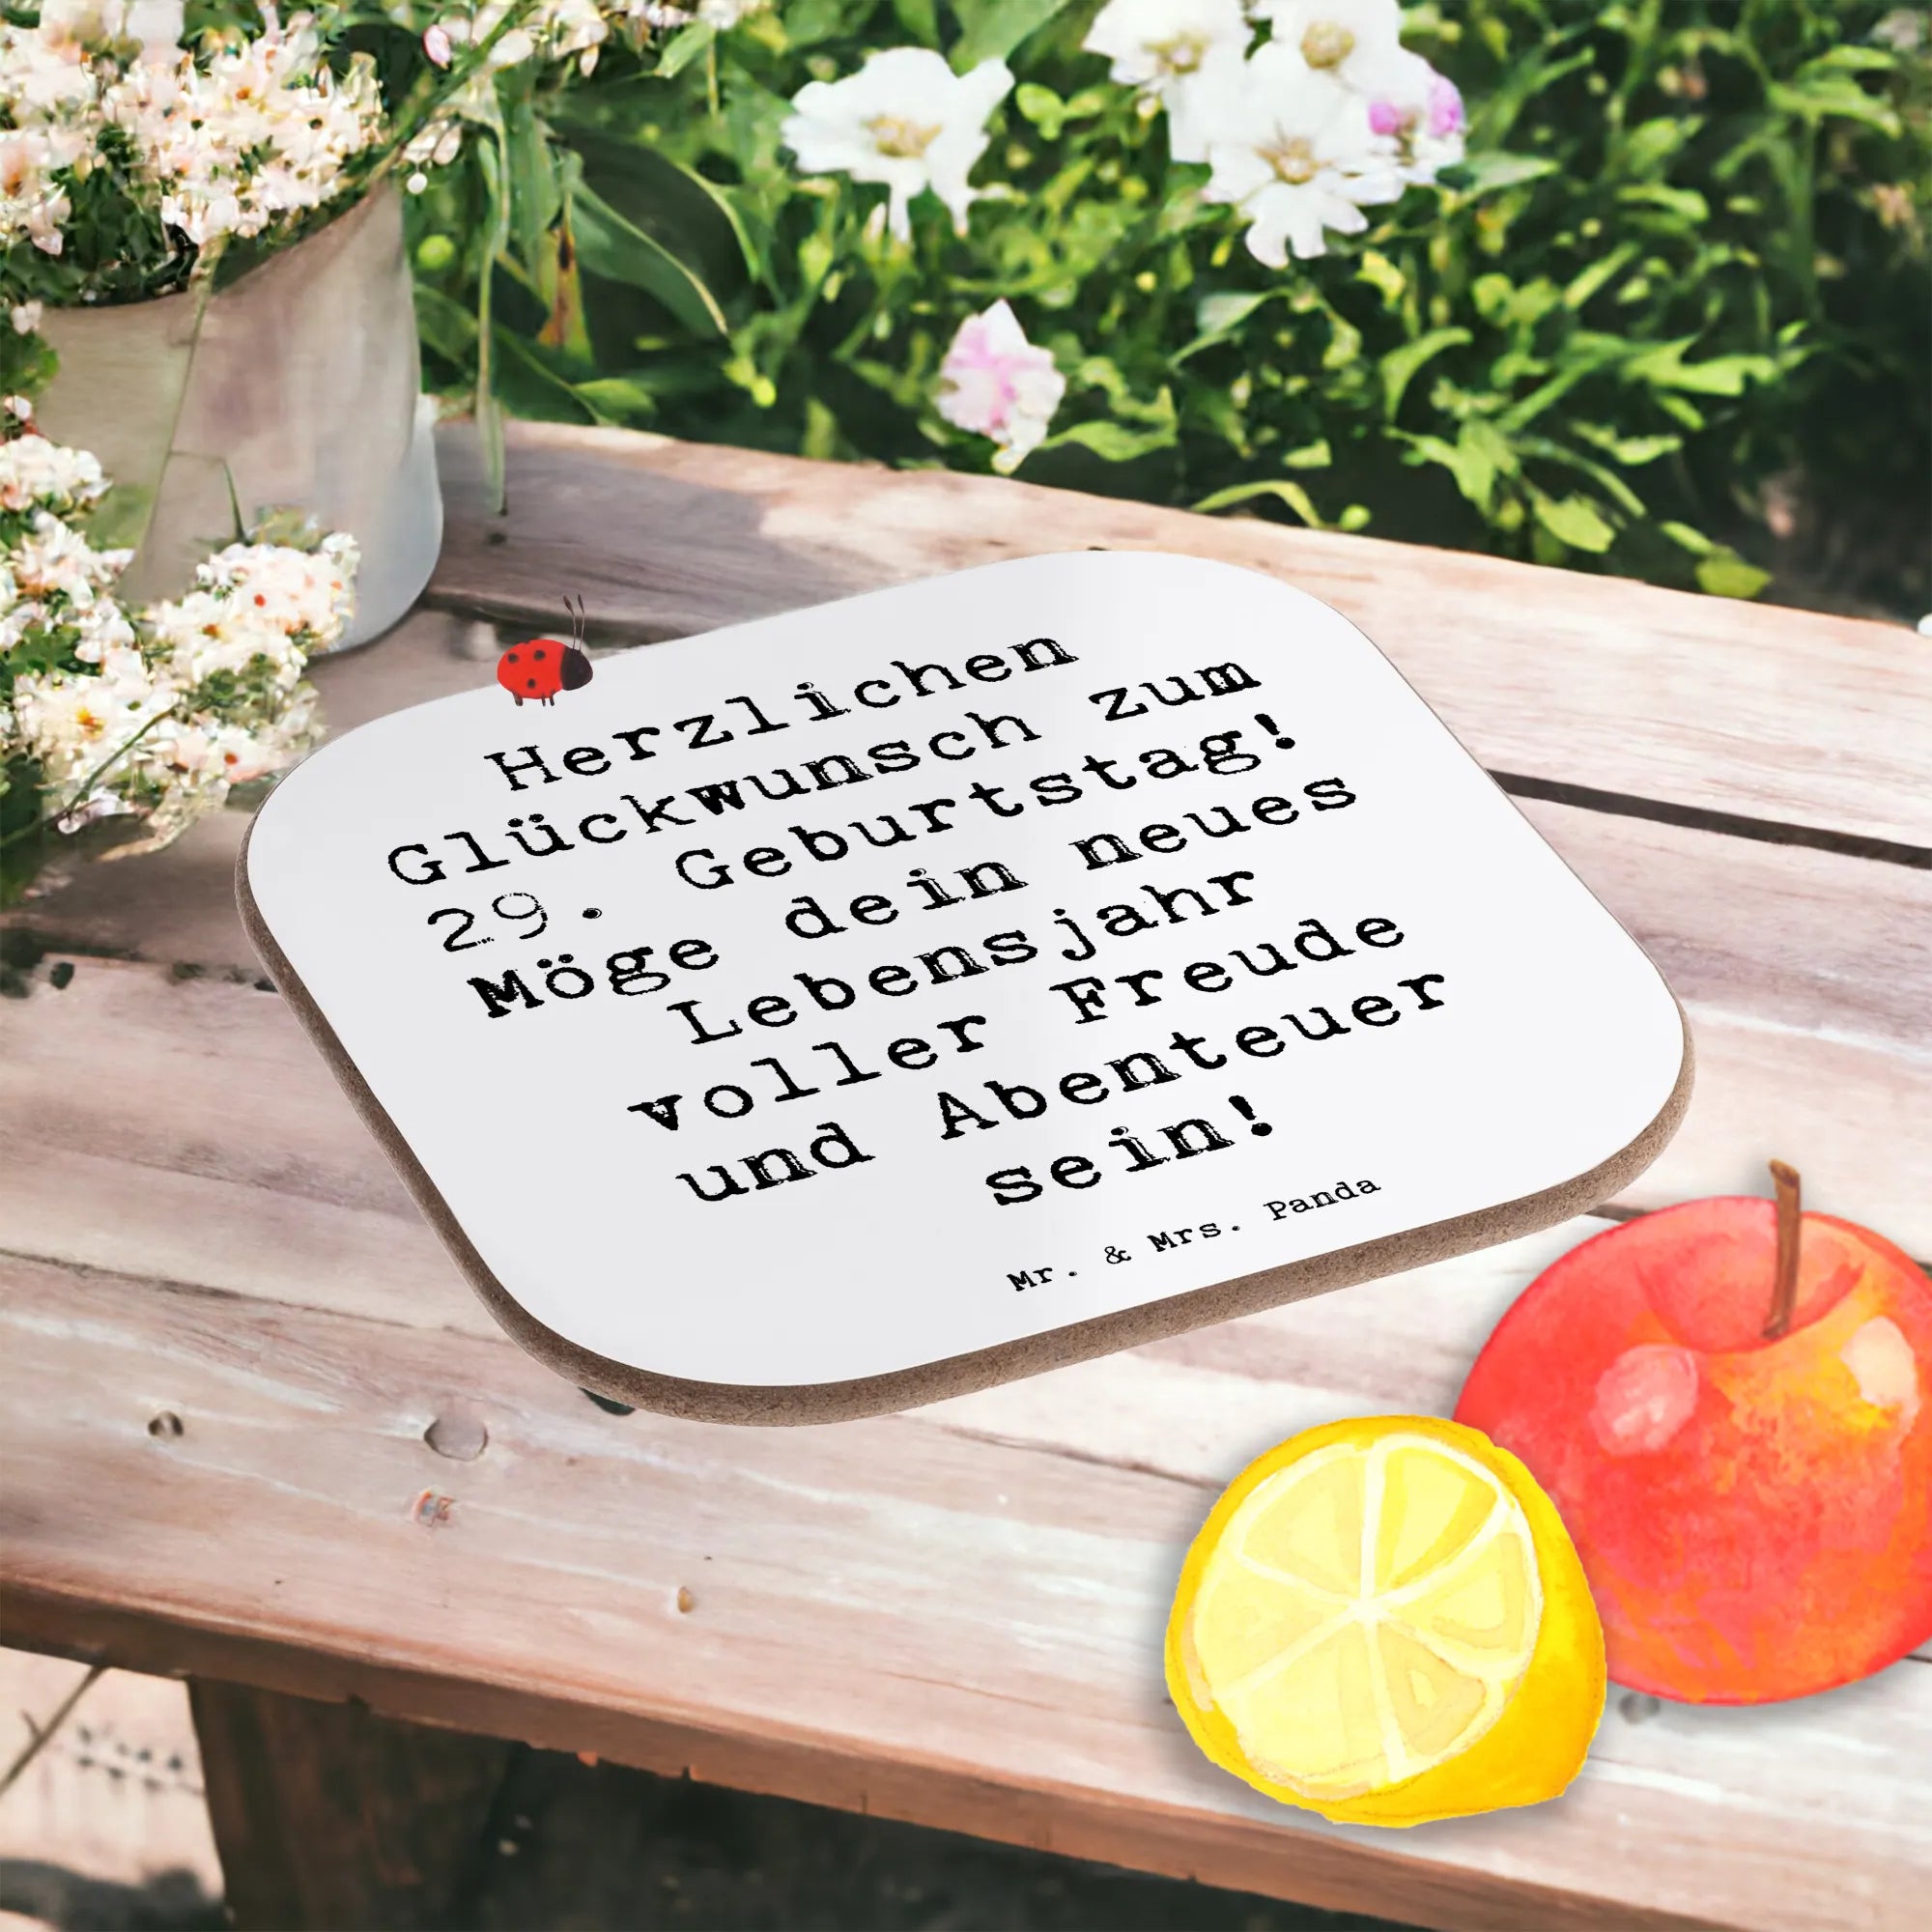 Herzlichen
Glückwunsch zum
29. Geburtstag!
Möge dein neues
Lebensjahr
voller Freude
und Abenteuer
sein!
Mr. & Mrs. Panda